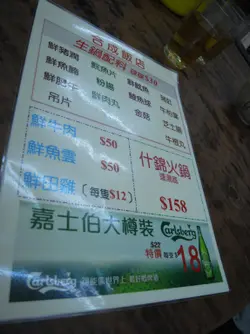 合成飯店
生鍋配料 每款$10
鮮豬潤
鮮魚腩
粉腸
鮮魷魚
鯪魚球
鮮肉丸
金菇
芝士腸
牛根丸
吊片
鮮牛肉 $50
鮮魚雲 $50
鮮田雞 (每隻$12)
什錦火鍋
$158
嘉士伯大樽裝
Carlsberg
$22
特價 每支 $18
Carlsberg